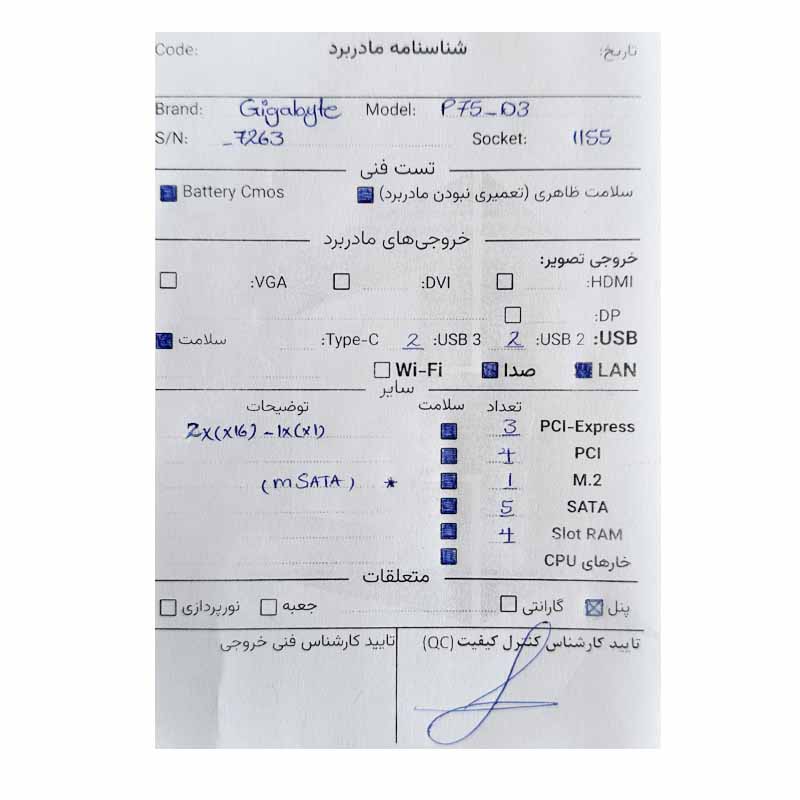 Code: شناسنامه مادربرد تاریخ:
Brand: Gigabyte Model: P75_D3
S/N: _7263 Socket: 1155
تست فنی
سلامت ظاهری (تعمیری نبودن مادربرد) Battery Cmos
خروجی‌های مادربرد
خروجی تصویر:
HDMI: DVI: VGA:
DP:
USB: USB 2: 2 USB 3: 2 Type-C: سلامت
LAN صدا Wi-Fi
سایر
تعداد سلامت توضیحات
PCI-Express 3 2x(x16) - 1x(x1)
PCI 4
M.2 1 * (mSATA)
SATA 5
Slot RAM 4
خارهای CPU
متعلقات
پنل گارانتی جعبه نورپردازی
تایید کارشناس کنترل کیفیت (QC) تایید کارشناس فنی خروجی